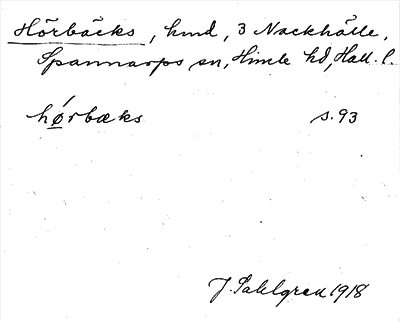 Hörbäcks, hmd, 3 Nackhälle,
Spannarps sn, Himle hd, Hall. l.
hǿrbæks s. 93
J. Sahlgren 1918